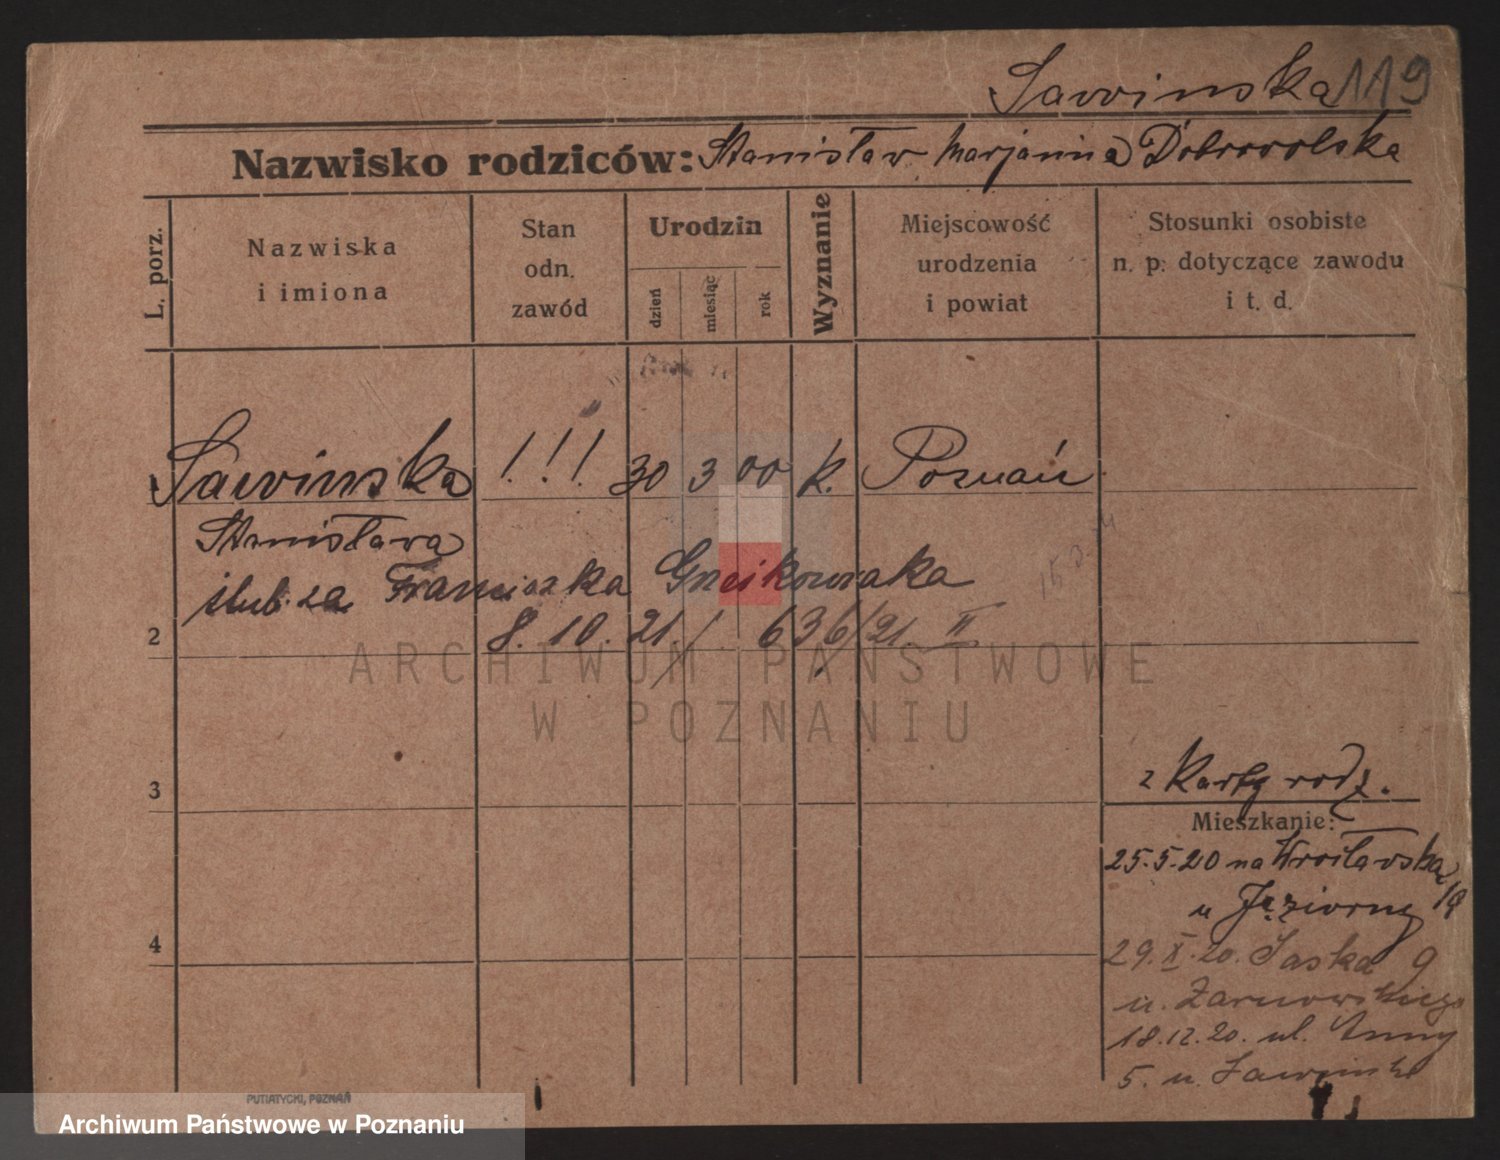 Sawinska 119
Nazwisko rodziców: Stanisław Marjanna Dobrowolska
L. porz.
Nazwiska
i imiona
Stan
odn.
zawód
Urodzin
dzień
miesiąc
rok
Wyznanie
Miejscowość
urodzenia
i powiat
Stosunki osobiste
n. p. dotyczące zawodu
i t. d.
Sawinska !!! 30 3 00 k. Poznań
Stanisława
ślub. za Franciszka
2 8. 10. 21 / 636/21 II
ARCHIWUM PAŃSTWOWE
W POZNANIU
3 z Karty rodz.
Mieszkanie:
25.5.20 na Wrocławska
u Jeziorny
4 29.X.20. Łaska 9
u. Żarnowskiego
18.12.20. ul. Anny
5. u.
PUTIATYCKI, POZNAŃ
Archiwum Państwowe w Poznaniu